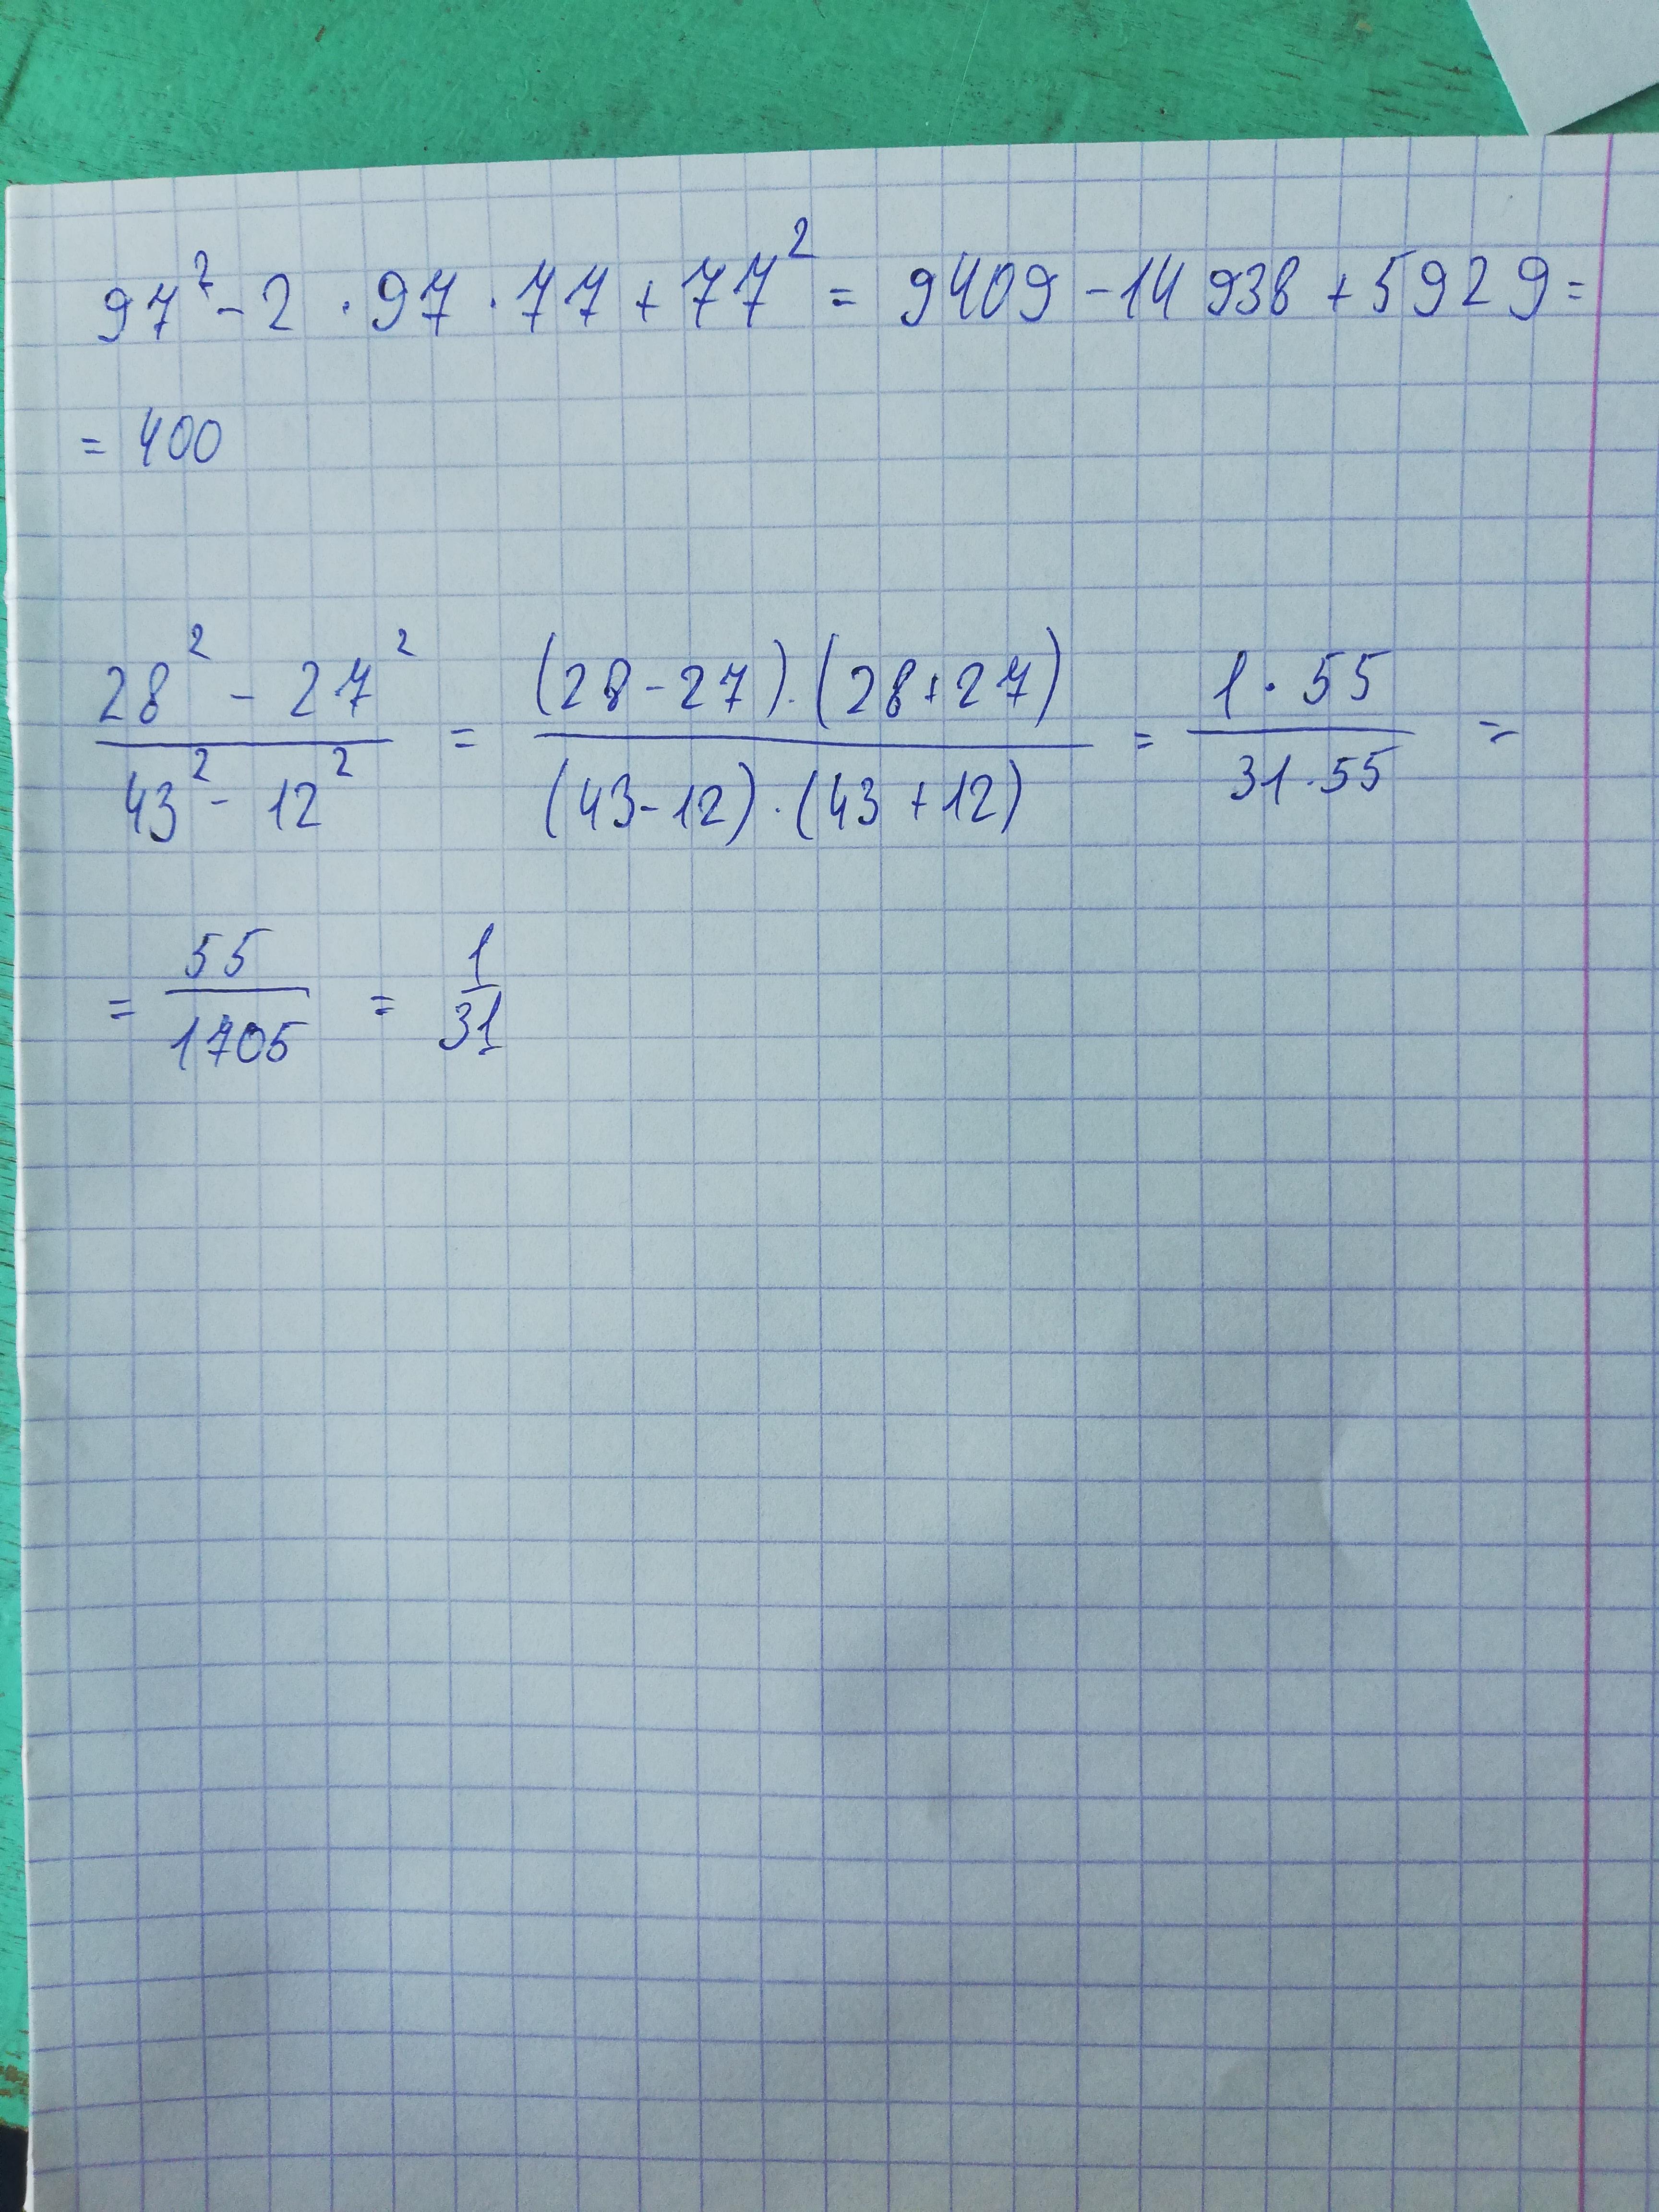 97² - 2 · 97 · 77 + 77² = 9409 - 14 938 + 5929 =
= 400
(28² - 27²)/(43² - 12²) = ((28-27)·(28+27))/((43-12)·(43+12)) = (1·55)/(31·55) =
= 55/1705 = 1/31